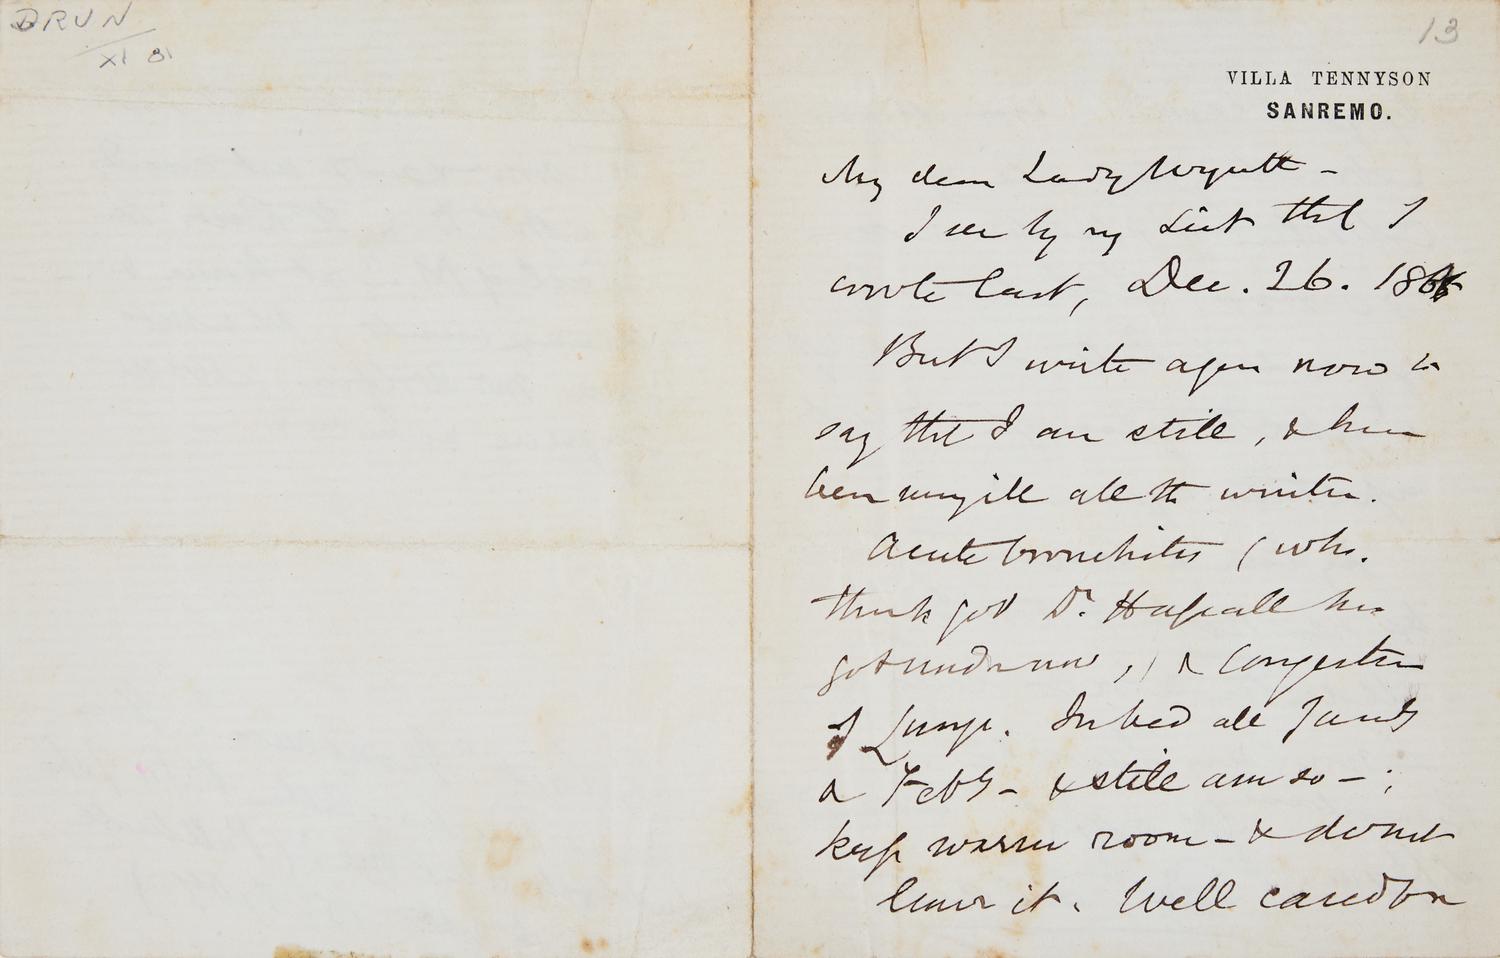 DRUN
XI 81
13
VILLA TENNYSON
SANREMO.
My dear Lady Wyatt –
I see by my List that I
wrote last, Dec. 26. 1886
But I write again now to
say that I am still, & have
been very ill all the winter.
Acute bronchitis (whh.
thank god Dr. Hassall has
got under now,) & Congestion
of Lungs. In bed all Jany
& Feby – & still am so – ;
keep warm room – & do not
leave it. Well cared for